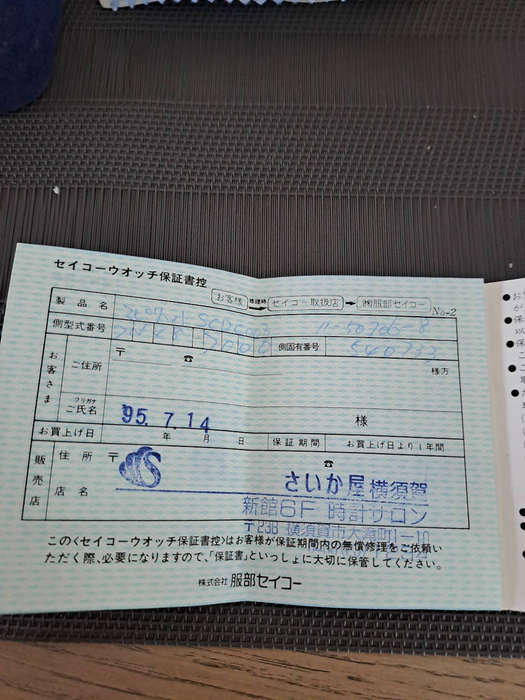 セイコーウオッチ保証書控
お客様 修理時 セイコー取扱店 ㈱服部セイコー No-2
製品名
側型式番号 側固有番号
お客さま ご住所 〒 ☎ 様方
フリガナ
ご氏名 様
'95.7.14
お買上げ日 年 月 日 保証期間 お買上げ日より1年間
販売店 住所 〒 ☎
店名 S さいか屋横須賀
新館6F 時計サロン
〒238 横須賀市大滝町1-10
このくセイコーウオッチ保証書控〉はお客様が保証期間内の無償修理をご依頼
ただく際、必要になりますので、「保証書」といっしょに大切に保管してください。
株式会社 服部セイコー